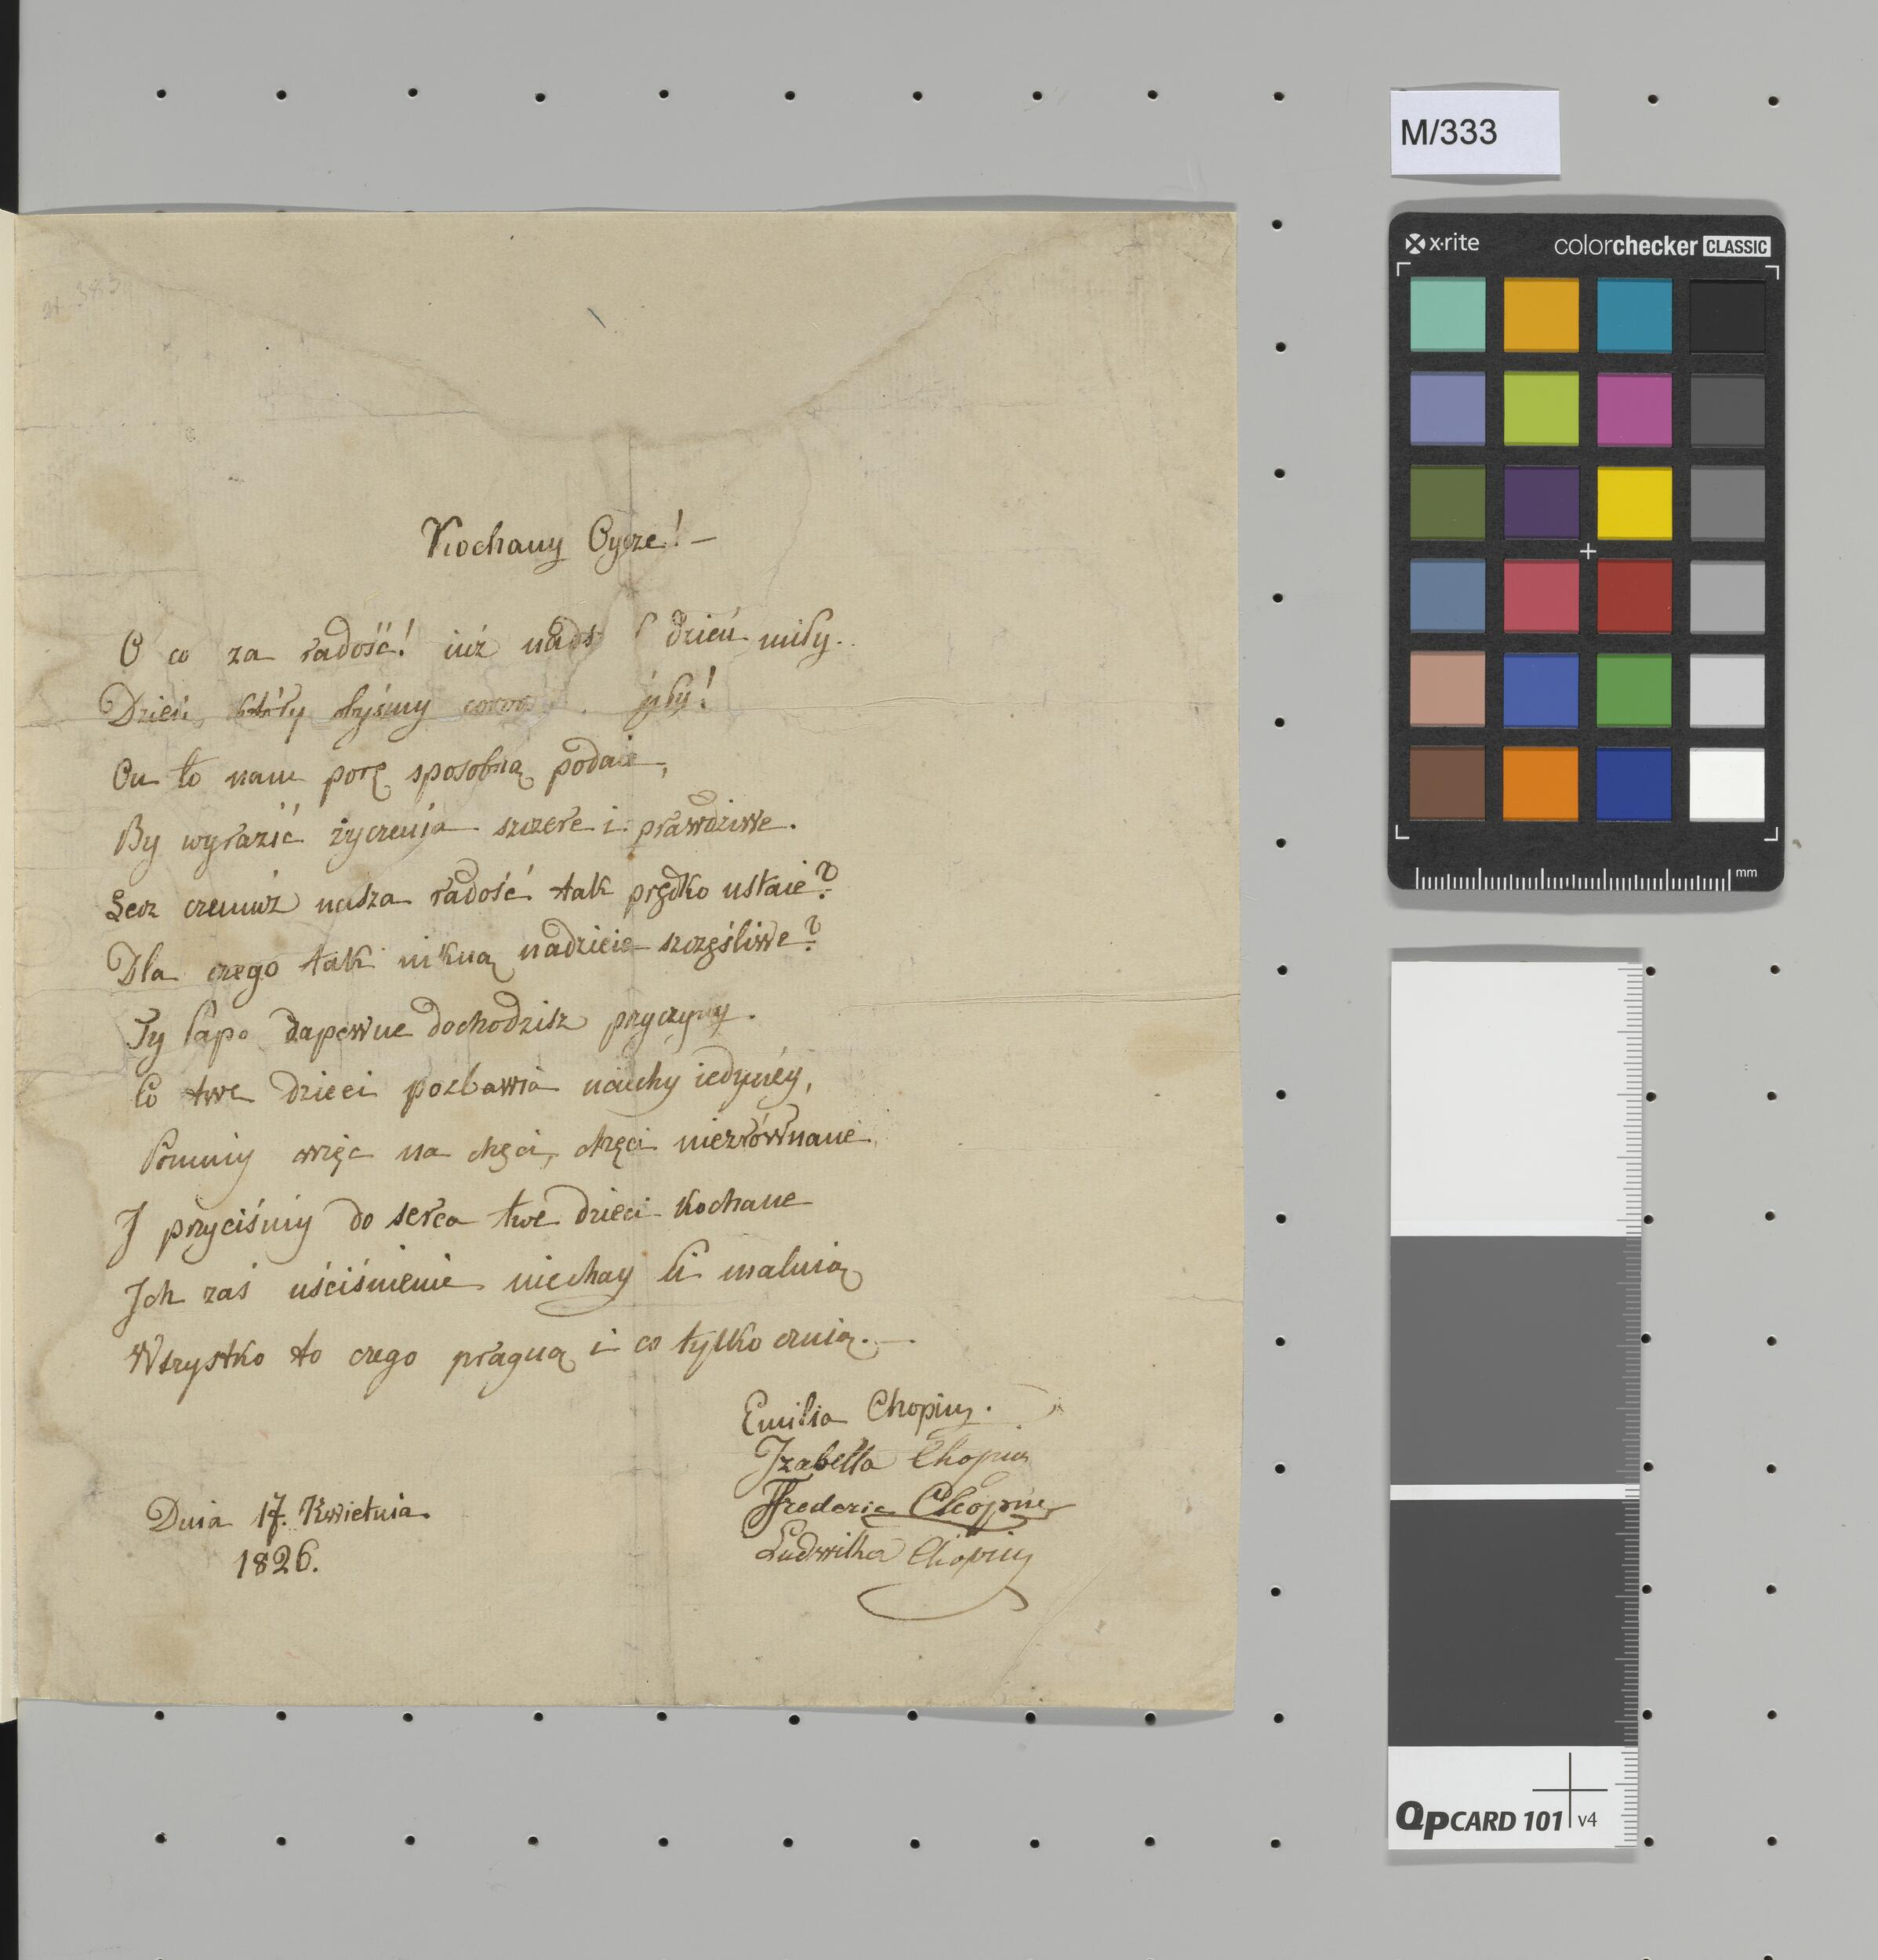 M/333
x·rite
colorchecker CLASSIC
Kochany Oycze! —
O co za radość! iuż dzień miły.
Dzień, którybyśmy
On to nam porę sposobną podaie,
By wyrazić życzenia szczere i prawdziwe.
Lecz czemuż nasza radość tak prędko ustaie?
Dla czego tak nikną nadzieie szczęśliwe?
Ty Papo zapewne dochodzisz przyczyny.
Co twe dzieci pozbawia uciechy iedynéy,
Pomniy więc na chęci, chęci niezrównane
I przyciśniy do serca twe dzieci kochane
Ich zaś uściśnienie niechay Ci
Wszystko to czego pragną i co tylko czuią. —
Emilia Chopin.
Izabella Chopin
Frederic Chopin
Ludwika Chopin
Dnia 17. Kwietnia.
1826.
mm
QpCARD 101 v4